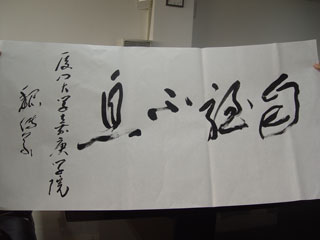 自强不息
厦门大学嘉庚学院